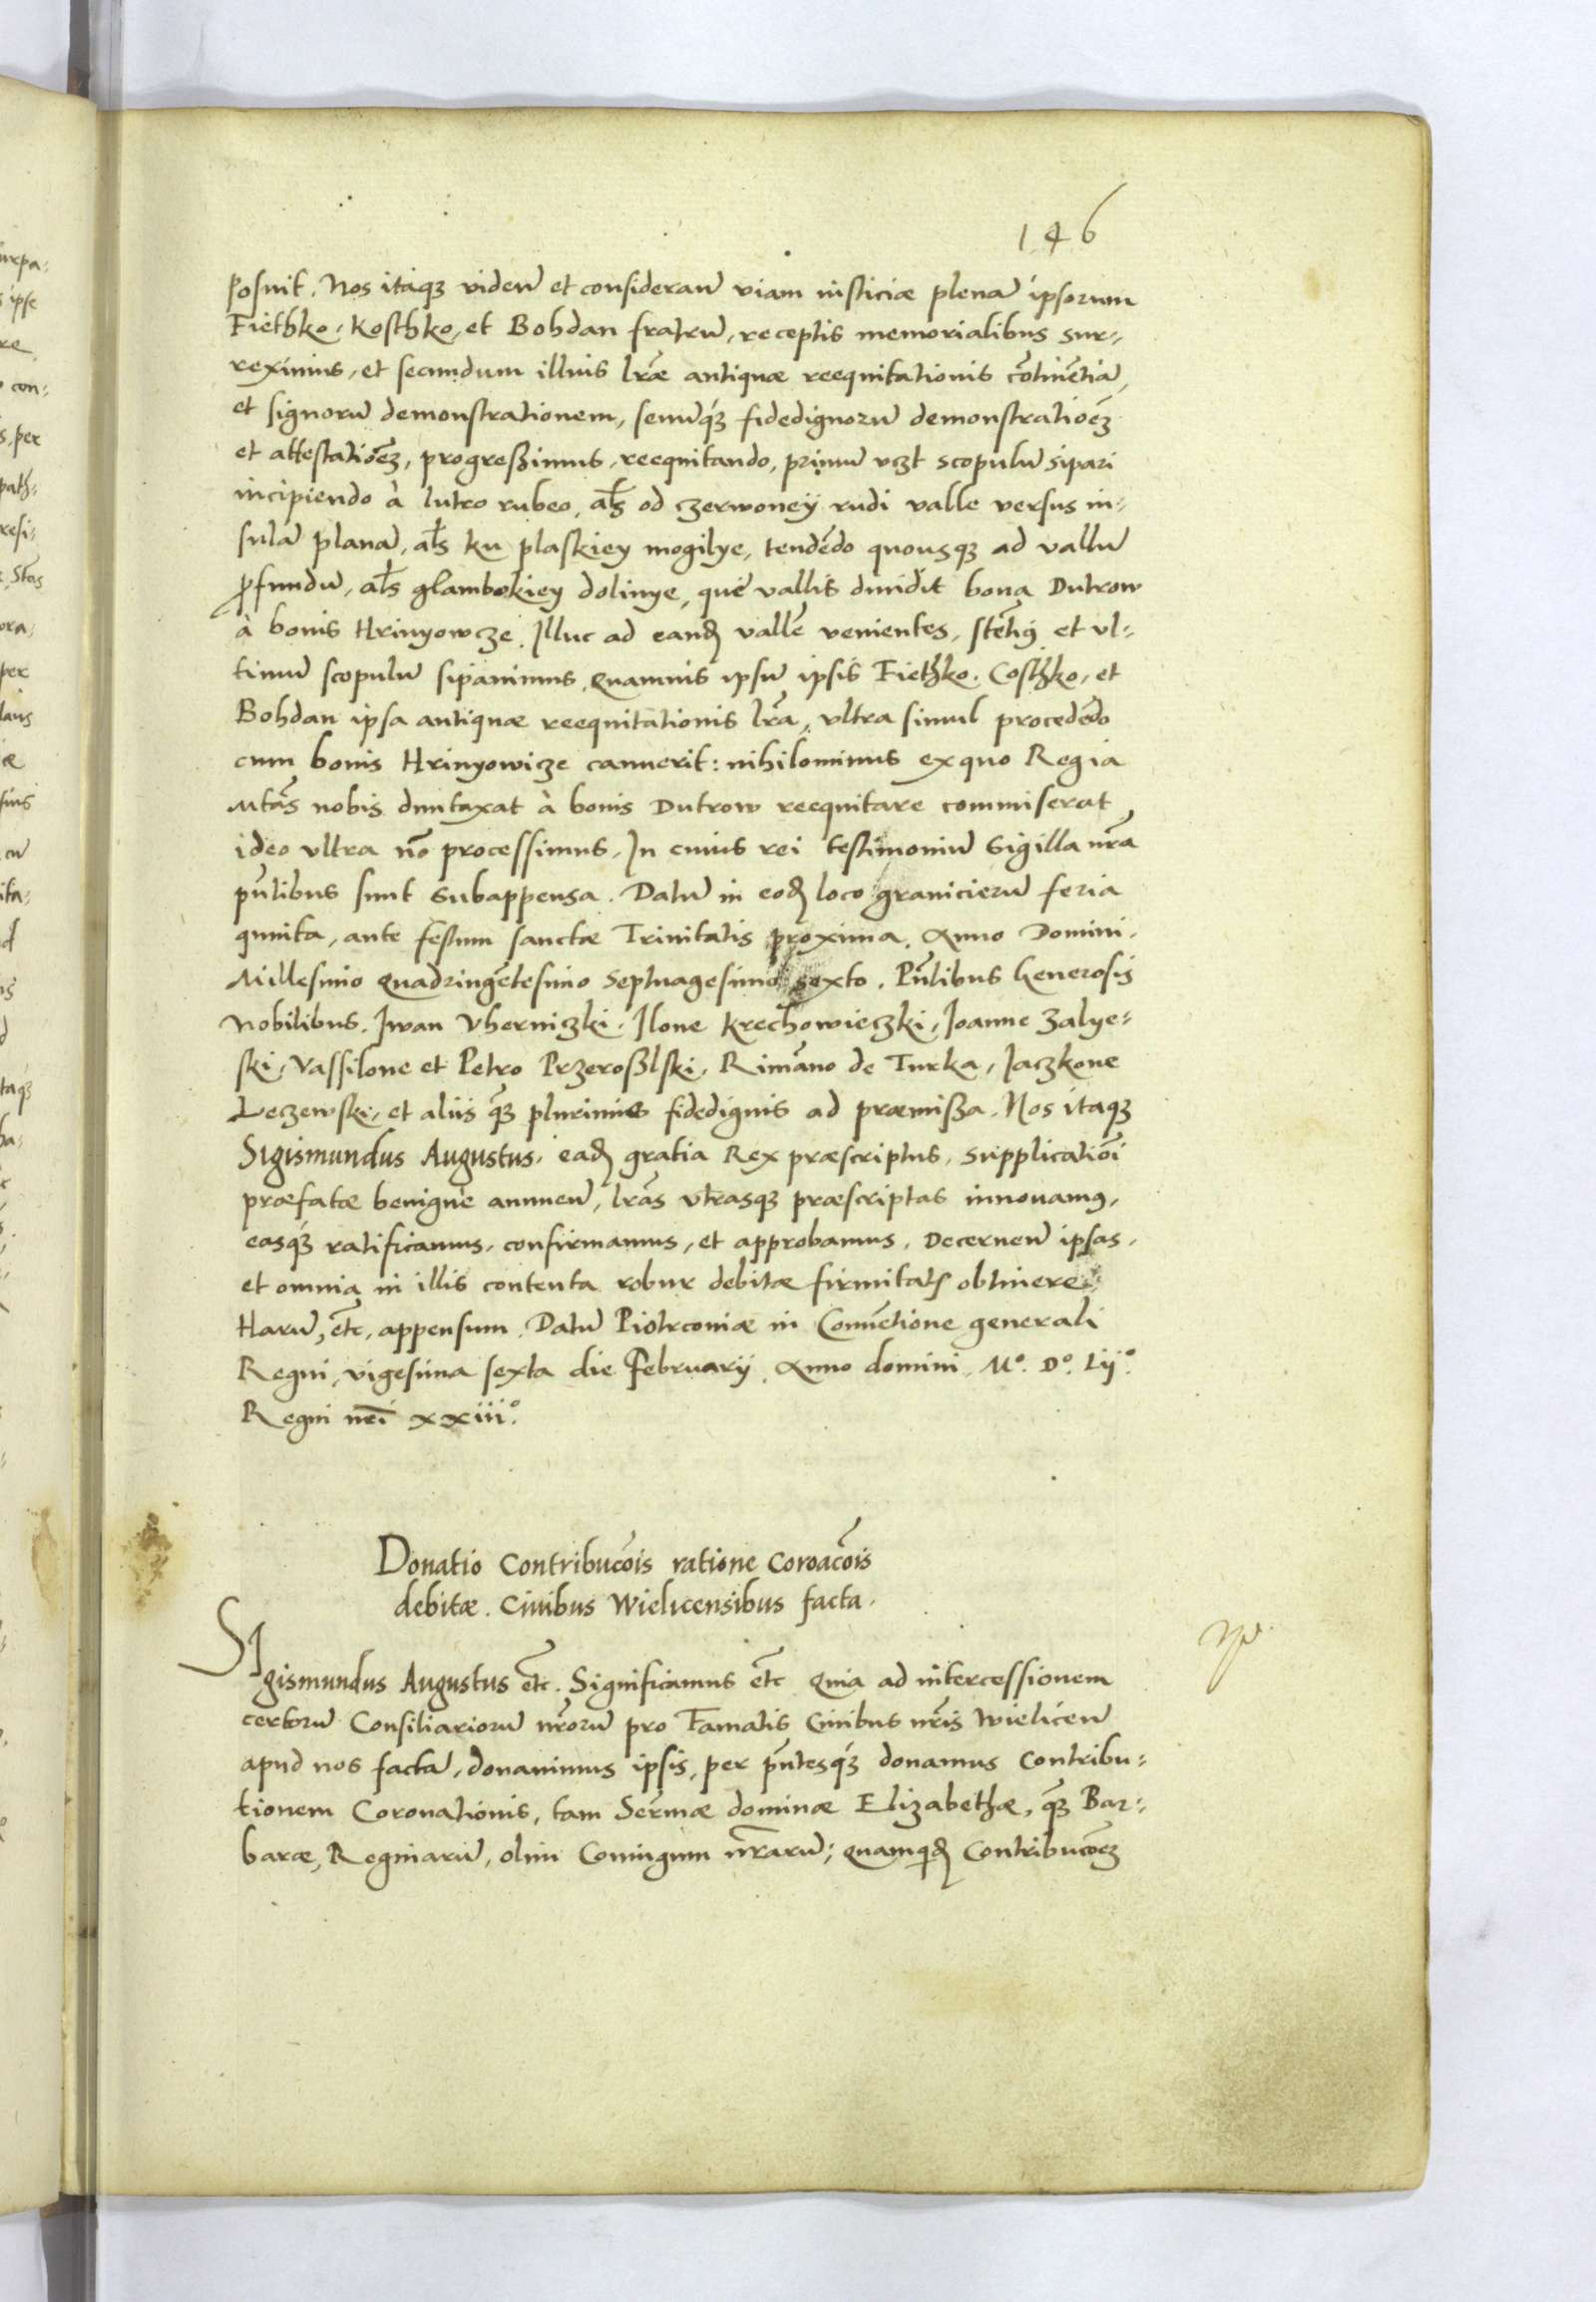 146
posuit. Nos itaqȝ viden̄ et consideran̄ viam iusticiæ plenā ipsorum
Fiethko, Kosthko, et Bohdan fratrū, receptis memorialibus sur-
reximus, et secundum illius lr̄æ antiquæ reequitationis cōtinētiā,
et signorū demonstrationem, senūqȝ fidedignorū demonstratiōeȝ
et attestatiōeȝ, progreßimus, reequitando, primū vȝt scopulū sipari
incipiendo à lutro rubeo, al̄s od czerwoneÿ rudi valle versus in-
sulā planā, al̄s ku plaskiey mogilye, tendēdo quousqȝ ad vallū
ꝓfundū, al̄s glambokiey dolinye, que vallis diuidit bona Dutrow
à bonis Hrinyowcze. Illuc ad eandꝫ vallē venientes, stetiꝰ et vl-
timū scopulū sipauimus, quamuis ipsū ipsis Fiethko. Costhko, et
Bohdan ipsa antiquæ reequitationis lr̄a, vltra simul procedēdo
cum bonis Hrinyowicze cauuerit: nihilominus ex quo Regia
Mtās nobis duntaxat à bonis Dutrow reequitare commiserat
ideo vltra nō processimus. In cuius rei testimoniū Sigilla nr̄a
pn̄tibus sunt subappensa. Datū in eodꝫ loco granicierū feria
quinta, ante festum sanctæ Trinitatis proxima. Anno Domini.
Millesimo quadringētesimo septuagesimo sexto. Pn̄tibus Generosis
Nobilibus. Iwan Vherniczki. Ilone Krechowieczki, Joanne Zalye-
ski, Vassilone et Petro Przeroßlski, Rimāno de Turka, Jaczkone
Leczewski, et aliis qȝ plurimis fidedignis ad præmißa. Nos itaqȝ
Sigismundus Augustus, eadꝫ gratia Rex præscriptus, supplicatiōi
præfatæ benigne annuen̄, lr̄as vtrasqȝ præscriptas innouamꝰ,
easqȝ ratificamus, confirmamus, et approbamus. Decernen̄ ipsas,
et omnia in illis contenta robur debitæ firmitatꝭ obtinere.
Harū, etc̄, appensum. Datū Piotrconiæ in Conuētione generali
Regni, vigesima sexta die Februarij. Anno domini. Mº. Dº. Lijº.
Regni nr̄i xxiijº.
Donatio Contribuc̄ois ratione Coroac̄ois
debitæ. Ciuibus Wielicensibus facta.
Sigismundus Augustus etc̄. Significamus etc̄ quia ad intercessionem
certorū Consiliariorū nr̄orū pro Famatis Ciuibus nr̄is Wielicen̄
apud nos factā, donauimus ipsis, per pn̄tesqȝ donamus Contribu-
tionem Coronationis, tam Serm̄æ dominæ Elizabethæ, qȝ Bar-
baræ, Reginarū, olim Coniugum nr̄arū; quamqidꝫ Contribuc̄oeȝ